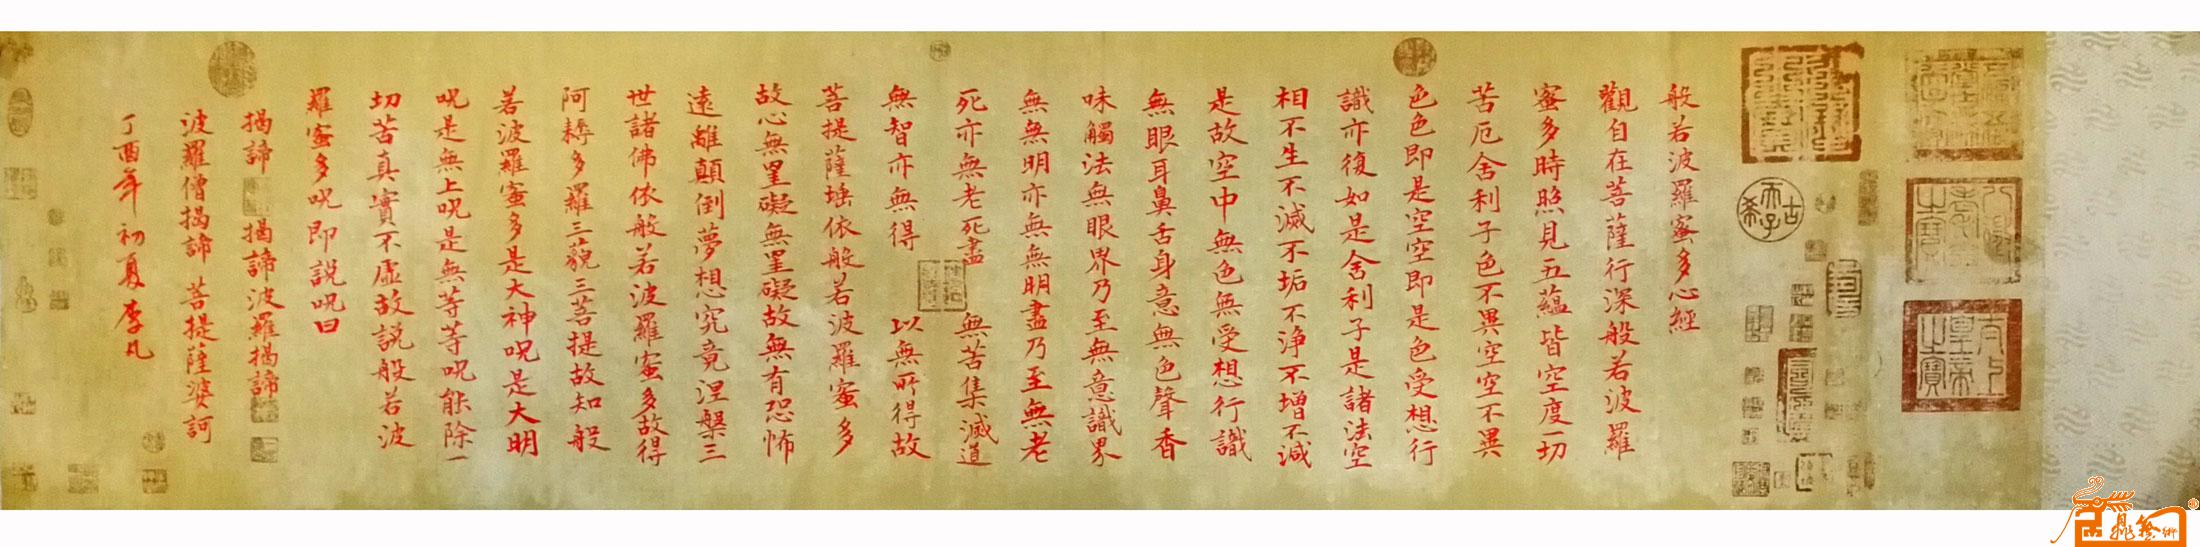 般若波羅蜜多心經
觀自在菩薩行深般若波羅
蜜多時照見五蘊皆空度一切
苦厄舍利子色不異空空不異
色色即是空空即是色受想行
識亦復如是舍利子是諸法空
相不生不滅不垢不淨不增不減
是故空中無色無受想行識
無眼耳鼻舌身意無色聲香
味觸法無眼界乃至無意識界
無無明亦無無明盡乃至無老
死亦無老死盡 無苦集滅道
無智亦無得 以無所得故
菩提薩埵依般若波羅蜜多
故心無罣礙無罣礙故無有恐怖
遠離顛倒夢想究竟涅槃三
世諸佛依般若波羅蜜多故得
阿耨多羅三藐三菩提故知般
若波羅蜜多是大神呪是大明
呪是無上呪是無等等呪能除一
切苦真實不虛故説般若波
羅蜜多呪即説呪曰
揭諦 揭諦波羅揭諦
波羅僧揭諦 菩提薩婆訶
丁酉年初夏李凡
八徵耄念之寶
太上皇帝之寶
古希天子